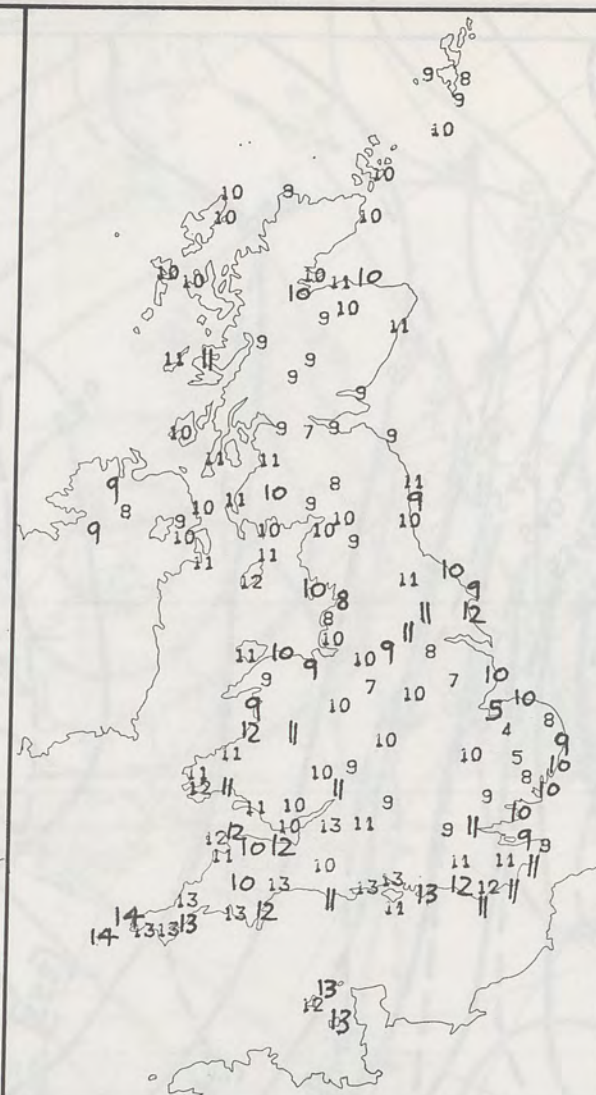 9 8
9
10
10
10 9
10 10
10 10 10 11 10
10
9 10
11
9
11 11 9
9
9
10 9 7 9 9
11 11
9 8 11
11 10 9
8 10 9
9 10 10
9 10 10
10 9
11 11
10
12 11
10 9
8 11 12
8 11
10 9 8
11 10 10
9
9 7 7 10
10
9 10 5
8
12 11 4
10 9
11 10 5
10
11 10 9 8
12 11 11 10
9
11 10 10
12 12 10 13 11 9 11
9
10 12 9
11 10 11 11 11
10 13 13 13 12 12
13 11 13
14 13 12 11 11 11
14 13 13 13
13
12
13